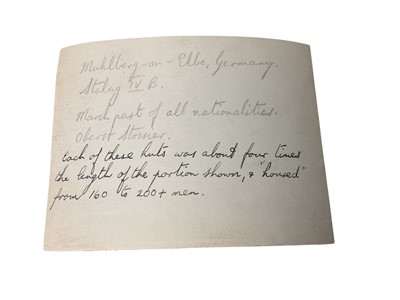 Muhlberg-on-Elbe, Germany.
Stalag IV B.
March past of all nationalities.
Oberst Stosser.
Each of these huts was about four times
the length of the portion shown, & "housed"
from 160 to 200+ men.